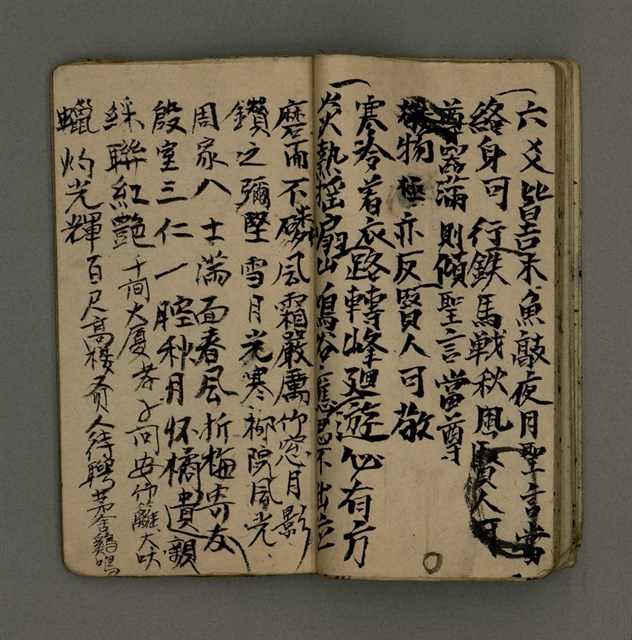 六爻皆吉木魚敲夜月聖言當
終身可行鉄馬戟秋風賢人可
尊器滿則傾聖言當尊
物極亦反賢人可敬
寒冷着衣路轉峰廻遊必有方
炎熱搖扇山鳴谷應思不出位
磨而不磷風霜嚴厲竹窓月影
鑽之彌堅雪月光寒柳院風光
周家八士滿面春風折梅寄友
殷室三仁一腔秋月怀橘遺親
綵聯紅艷千間大廈孝子問安竹籬犬吠
蠟灼光輝百尺高樓賓人待聘茅舍鷄鳴